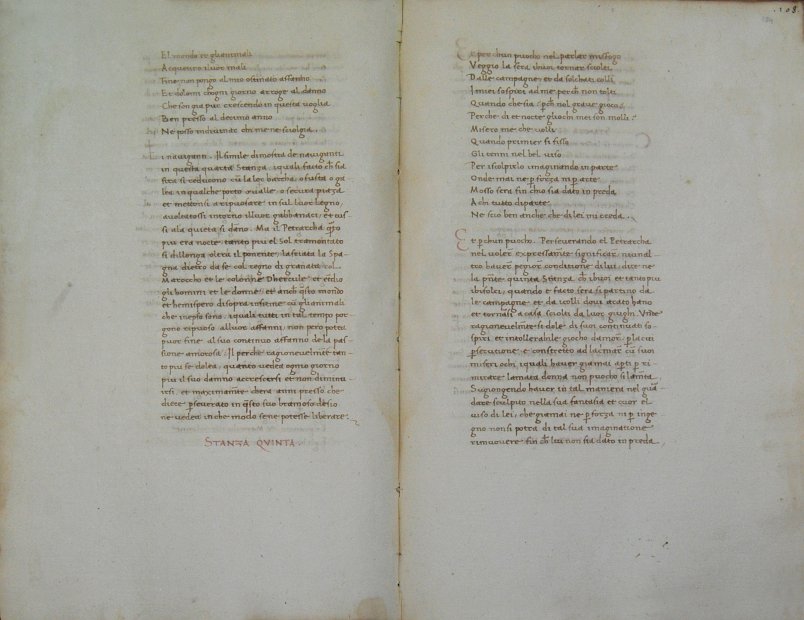 El mondo et gli animali
Acqueture i lor mali
Fine non pongo al mio ostinato affanno
Et dolomi chogni giorno arroge al danno
Che son gia pur crescendo in questa voglia
Ben presso al decimo anno
Ne posso indivinar chi me ne scioglia.
I naviganti. Il simile dimostra de naviganti
in questa quarta Stanza, i quali facto ch sia
sera si reducono cū la loc barcha, o fusta o ga
lea in qualche porto o valle o secura piaza
et mettonsi a ripuosare in sul luor legno,
avoltatossi intorno il luor gabbanaci, et cus
si ala quieta si dano. Ma il Petrarcha qsto
piu era nocte, tanto piu el Sol tramontato
si dillonga oltra il ponente, lassciata la Spa
gna dietro da se col regno di granata col
Marocho et le colonne Dhercule, et etdio
gli homini et le donne, et anch qsto mondo
et hemispero disopra insieme cū gli animali
che in epso sono, i quali tutti in tal tempo por
gono ripuoso alluor affanni, non pero potea
puor fine al suo continuo affanno de la pas
sione amorosa. Il perche ragionevelmēte tan
to piu se dolea, quanto vedea ogmo giorno
piu il suo damno accrescersi et non diminu
irsi, et maximamte chera anni presso che
diece perseverato in qsto suo bramoso desio
ne vedea in che modo sene potesse liberare.
STANZA QVINTA.
.108.
Et per chun puocho nel parlar mi sfogo
Veggio la sera i buoi tornar sciolti
Dalle campagne et da solchati colli
I miei sospiri ad me perch non tolti
Quando che sia, pch nol grave giogo
Perche di et nocte gliochi mei son molli
Misero me che volli
Quando primier si fisso
Gli tenni nel bel viso
Per iscolpirlo imaginando in parte
Onde mai ne p forza ni p arte
Mosso sera fin chio sia dato in preda
A chi tutto diparte
Ne scio ben anche che di lei mi creda.
Et p chun puocho. Perseverando el Petrarcha
nel voler expressamte significar, niun al
tro haver pegior conditione di lui, dice ne
la pnte quinta Stanza, ch i buoi et tanto piu
i bifolci, quando e facto sera si partino da
le campagne et da colli dovi acato hano
et tornasi a casa, sciolti da luor giughi. Unde
ragionevelmte si dole di suoi continuati so
spiri et intollerabile giocho damor, p la cui
psecutione e constretto ad lacrimar cū suoi
miseri ochi, i quali haver giamai apti p ri
mirare lamata donna non puocho si lamta
Sugiongendo haver in tal maniera nel gua
dare scolpito nella sua fantasia et cuor el
viso di lei, che giamai ne p forza ni p inge
gno nonsi potra di tal sua imaginatione
rimuovere fin ch lui non sia dato in preda.